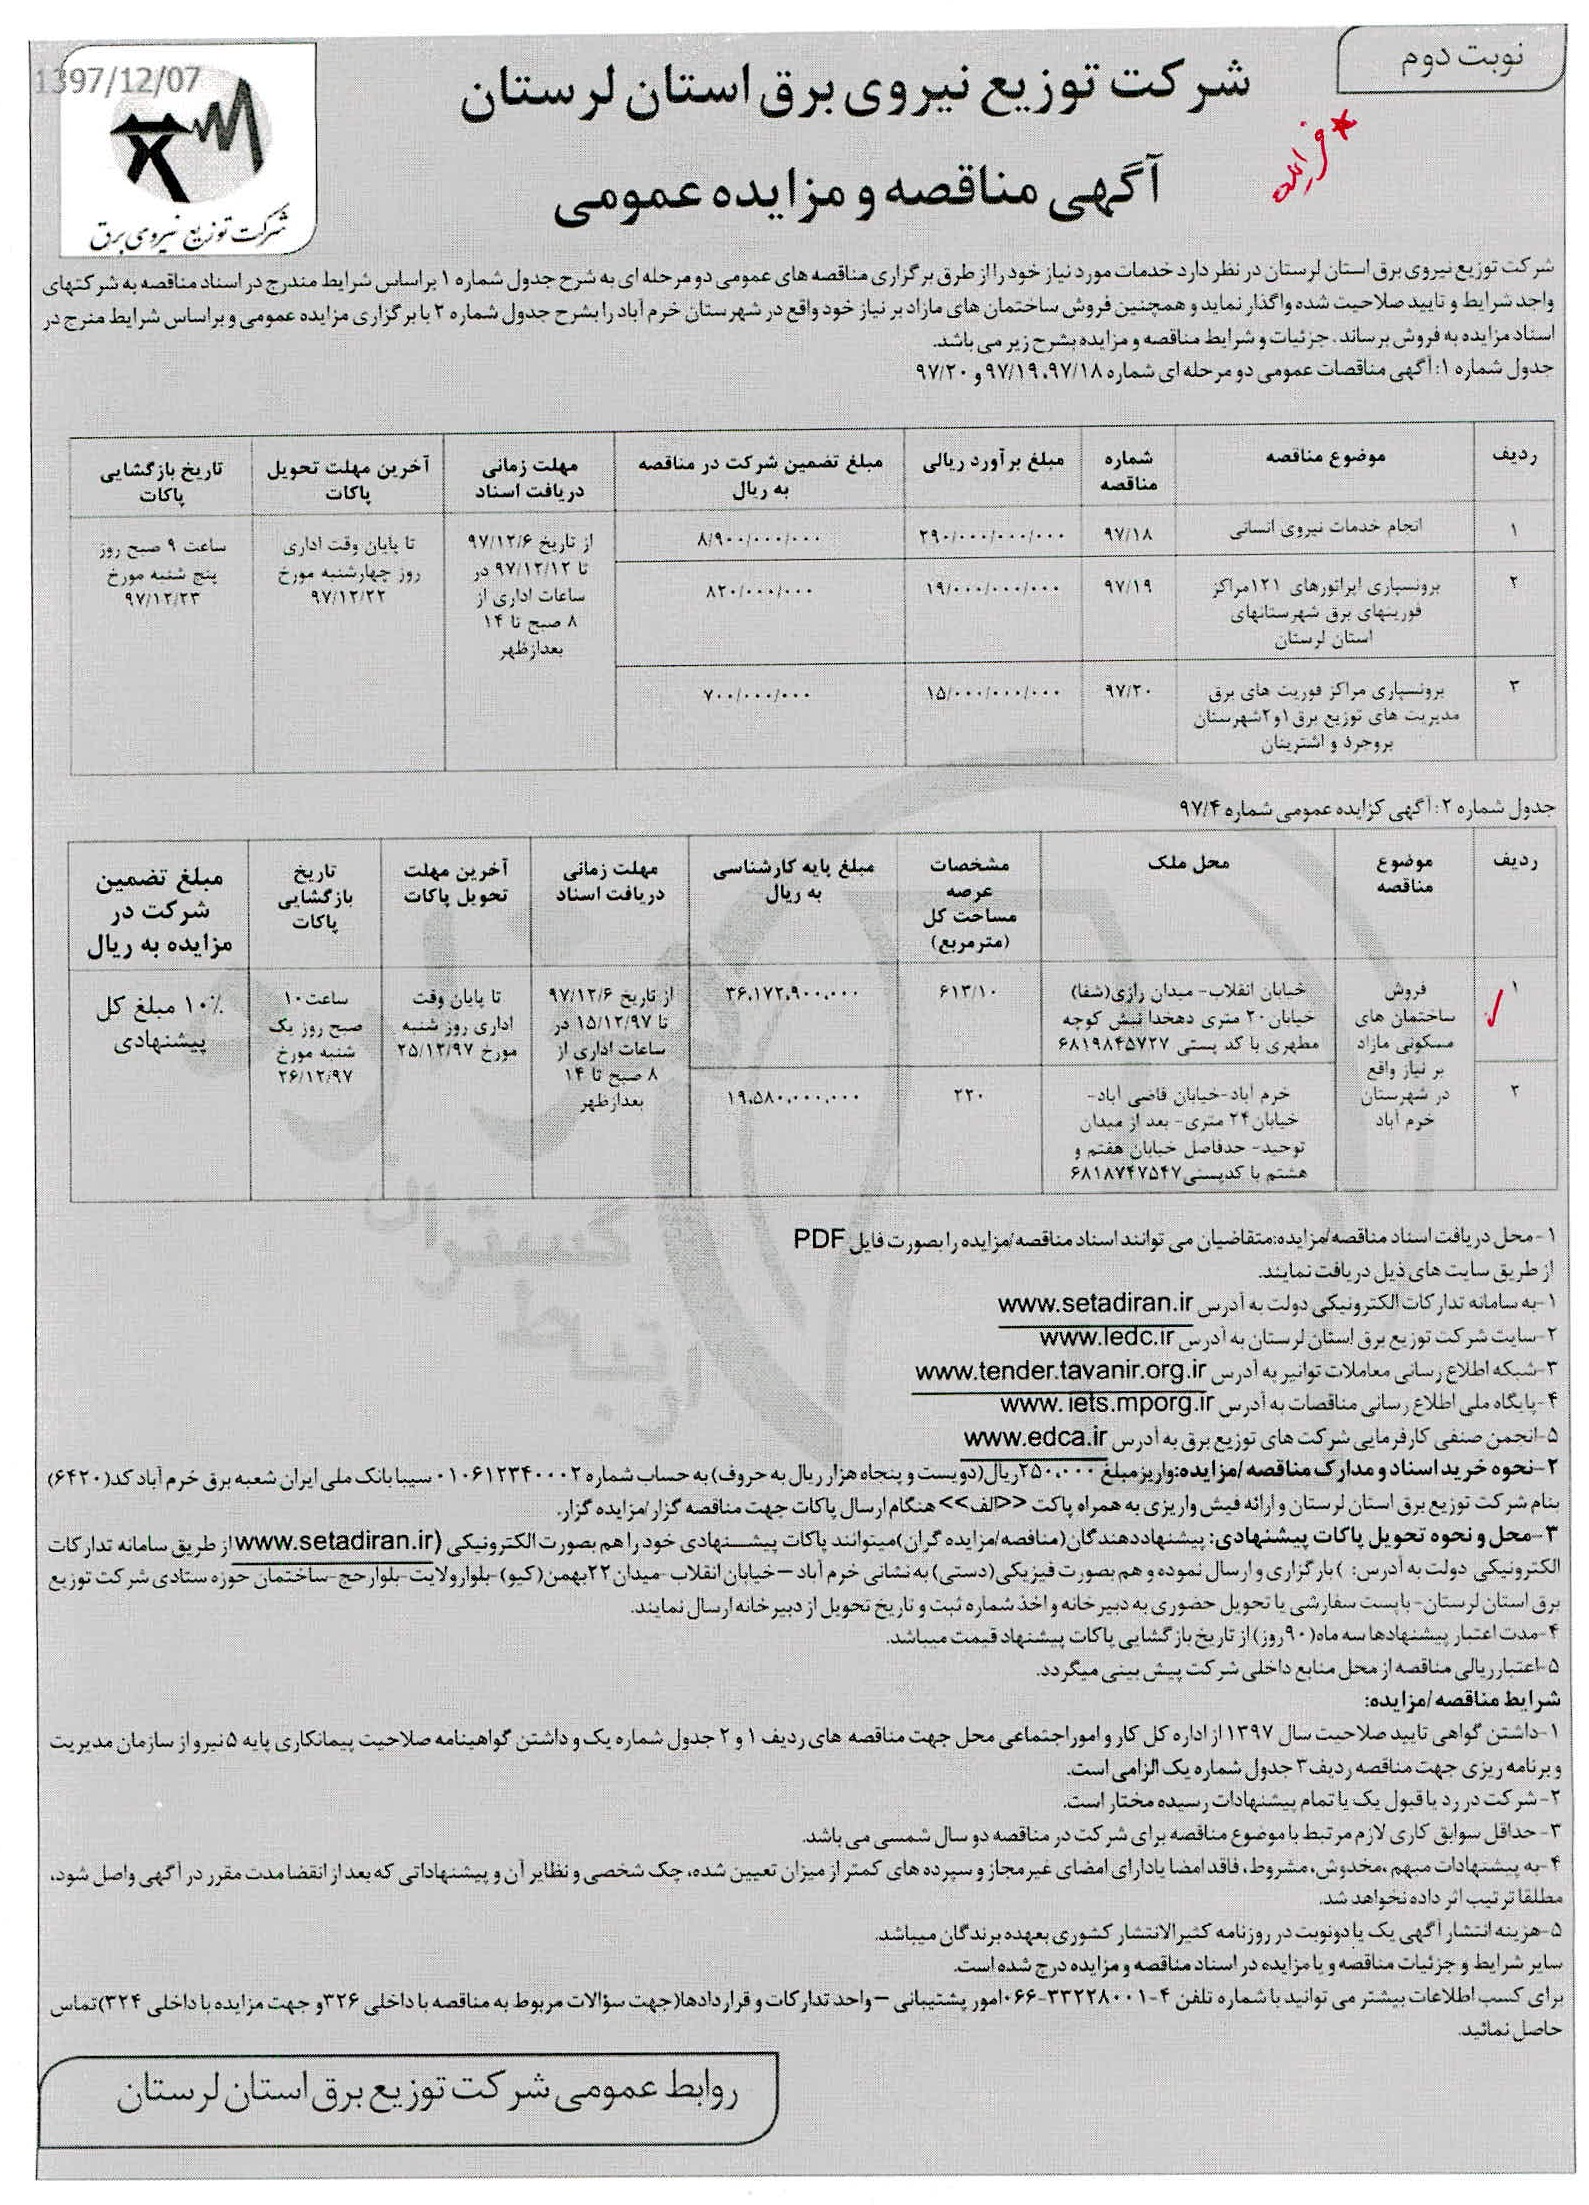 نوبت دوم
1397/12/07
شرکت توزیع نیروی برق استان لرستان
آگهی مناقصه و مزایده عمومی
شرکت توزیع نیروی برق
شرکت توزیع نیروی برق استان لرستان در نظر دارد خدمات مورد نیاز خود را از طرق برگزاری مناقصه های عمومی دو مرحله ای به شرح جدول شماره ۱ براساس شرایط مندرج در اسناد مناقصه به شرکتهای
واجد شرایط و تایید صلاحیت شده واگذار نماید و همچنین فروش ساختمان های مازاد بر نیاز خود واقع در شهرستان خرم آباد را بشرح جدول شماره ۲ با برگزاری مزایده عمومی و براساس شرایط منرج در
اسناد مزایده به فروش برساند. جزئیات و شرایط مناقصه و مزایده بشرح زیر می باشد.
جدول شماره ۱: آگهی مناقصات عمومی دو مرحله ای شماره ۹۷/۱۸، ۹۷/۱۹ و ۹۷/۲۰
ردیف | موضوع مناقصه | شماره مناقصه | مبلغ برآورد ریالی | مبلغ تضمین شرکت در مناقصه به ریال | مهلت زمانی دریافت اسناد | آخرین مهلت تحویل پاکات | تاریخ بازگشایی پاکات
۱ | انجام خدمات نیروی انسانی | ۹۷/۱۸ | ۲۹۰/۰۰۰/۰۰۰/۰۰۰ | ۸/۹۰۰/۰۰۰/۰۰۰ | از تاریخ ۹۷/۱۲/۶ تا ۹۷/۱۲/۱۲ در ساعات اداری از ۸ صبح تا ۱۴ بعدازظهر | تا پایان وقت اداری روز چهارشنبه مورخ ۹۷/۱۲/۲۲ | ساعت ۹ صبح روز پنج شنبه مورخ ۹۷/۱۲/۲۳
۲ | برونسپاری اپراتورهای ۱۲۱مراکز فوریتهای برق شهرستانهای استان لرستان | ۹۷/۱۹ | ۱۹/۰۰۰/۰۰۰/۰۰۰ | ۸۲۰/۰۰۰/۰۰۰
۳ | برونسپاری مراکز فوریت های برق مدیریت های توزیع برق ۱و۲شهرستان بروجرد و اشترینان | ۹۷/۲۰ | ۱۵/۰۰۰/۰۰۰/۰۰۰ | ۷۰۰/۰۰۰/۰۰۰
جدول شماره ۲: آگهی کزایده عمومی شماره ۹۷/۴
ردیف | موضوع مناقصه | محل ملک | مشخصات عرصه مساحت کل (مترمربع) | مبلغ پایه کارشناسی به ریال | مهلت زمانی دریافت اسناد | آخرین مهلت تحویل پاکات | تاریخ بازگشایی پاکات | مبلغ تضمین شرکت در مزایده به ریال
۱ | فروش ساختمان های مسکونی مازاد بر نیاز واقع در شهرستان خرم آباد | خیابان انقلاب- میدان رازی(شفا) خیابان۲۰ متری دهخدا نبش کوچه مطهری با کد پستی ۶۸۱۹۸۴۵۷۲۷ | ۶۱۳/۱۰ | ۳۶،۱۷۲،۹۰۰،۰۰۰ | از تاریخ ۹۷/۱۲/۶ تا ۱۵/۱۲/۹۷ در ساعات اداری از ۸ صبح تا ۱۴ بعدازظهر | تا پایان وقت اداری روز شنبه مورخ ۲۵/۱۲/۹۷ | ساعت۱۰ صبح روز یک شنبه مورخ ۲۶/۱۲/۹۷ | ۱۰٪ مبلغ کل پیشنهادی
۲ | خرم آباد-خیابان قاضی آباد- خیابان۲۴ متری- بعد از میدان توحید- حدفاصل خیابان هفتم و هشتم با کدپستی۶۸۱۸۷۴۷۵۴۷ | ۲۲۰ | ۱۹،۵۸۰،۰۰۰،۰۰۰
۱-محل دریافت اسناد مناقصه/مزایده:متقاضیان می توانند اسناد مناقصه/مزایده را بصورت فایل PDF
از طریق سایت های ذیل دریافت نمایند.
۱-به سامانه تدارکات الکترونیکی دولت به آدرس www.setadiran.ir
۲-سایت شرکت توزیع برق استان لرستان به آدرس www.ledc.ir
۳-شبکه اطلاع رسانی معاملات توانیر به آدرس www.tender.tavanir.org.ir
۴-پایگاه ملی اطلاع رسانی مناقصات به آدرس www. iets.mporg.ir
۵-انجمن صنفی کارفرمایی شرکت های توزیع برق به آدرس www.edca.ir
۲-نحوه خرید اسناد و مدارک مناقصه/مزایده:واریز مبلغ ۲۵۰،۰۰۰ریال(دویست و پنجاه هزار ریال به حروف) به حساب شماره ۰۱۰۶۱۲۳۴۰۰۰۲ سیبا بانک ملی ایران شعبه برق خرم آباد کد(۶۴۲۰)
بنام شرکت توزیع برق استان لرستان و ارائه فیش واریزی به همراه پاکت <<الف>> هنگام ارسال پاکات جهت مناقصه گزار/مزایده گزار.
۳-محل و نحوه تحویل پاکات پیشنهادی: پیشنهاددهندگان(مناقصه/مزایده گران)میتوانند پاکات پیشنهادی خود را هم بصورت الکترونیکی (www.setadiran.ir از طریق سامانه تدارکات
الکترونیکی دولت به آدرس: ) بارگزاری و ارسال نموده و هم بصورت فیزیکی(دستی) به نشانی خرم آباد –خیابان انقلاب-میدان۲۲بهمن(کیو)-بلوار ولایت-بلوار حج-ساختمان حوزه ستادی شرکت توزیع
برق استان لرستان-با پست سفارشی یا تحویل حضوری به دبیرخانه و اخذ شماره ثبت و تاریخ تحویل از دبیرخانه ارسال نمایند.
۴-مدت اعتبار پیشنهادها سه ماه(۹۰روز) از تاریخ بازگشایی پاکات پیشنهاد قیمت میباشد.
۵-اعتبار ریالی مناقصه از محل منابع داخلی شرکت پیش بینی میگردد.
شرایط مناقصه/مزایده:
۱-داشتن گواهی تایید صلاحیت سال ۱۳۹۷ از اداره کل کار و امور اجتماعی محل جهت مناقصه های ردیف ۱ و ۲ جدول شماره یک و داشتن گواهینامه صلاحیت پیمانکاری پایه ۵ نیرو از سازمان مدیریت
و برنامه ریزی جهت مناقصه ردیف ۳ جدول شماره یک الزامی است.
۲-شرکت در رد یا قبول یک یا تمام پیشنهادات رسیده مختار است.
۳-حداقل سوابق کاری لازم مرتبط با موضوع مناقصه برای شرکت در مناقصه دو سال شمسی می باشد.
۴-به پیشنهادات مبهم ،مخدوش، مشروط، فاقد امضا یا دارای امضای غیرمجاز و سپرده های کمتر از میزان تعیین شده، چک شخصی و نظایر آن و پیشنهاداتی که بعد از انقضا مدت مقرر در آگهی واصل شود،
مطلقا ترتیب اثر داده نخواهد شد.
۵-هزینه انتشار آگهی یک یا دونوبت در روزنامه کثیرالانتشار کشوری بعهده برندگان میباشد.
سایر شرایط و جزئیات مناقصه و یا مزایده در اسناد مناقصه و مزایده درج شده است.
برای کسب اطلاعات بیشتر می توانید با شماره تلفن ۴-۰۶۶-۳۳۲۲۸۰۰۱امور پشتیبانی –واحد تدارکات و قراردادها(جهت سؤالات مربوط به مناقصه با داخلی ۳۲۶و جهت مزایده با داخلی ۳۲۴)تماس
حاصل نمائید.
روابط عمومی شرکت توزیع برق استان لرستان